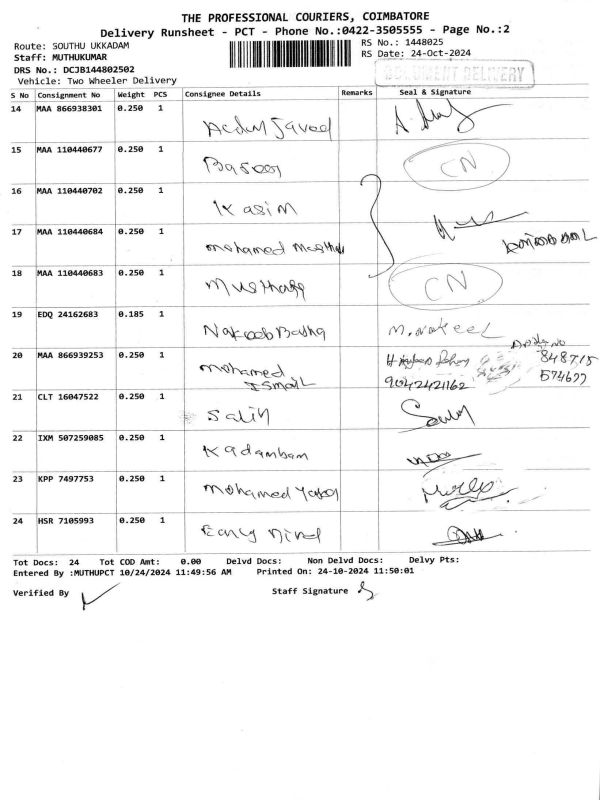 THE PROFESSIONAL COURIERS, COIMBATORE
Delivery Runsheet - PCT - Phone No.:0422-3505555 - Page No.:2
Route: SOUTHU UKKADAM
RS No.: 1448025
Staff: MUTHUKUMAR
RS Date: 24-Oct-2024
DRS No.: DCJB144802502
Vehicle: Two Wheeler Delivery
DOCUMENT DELIVERY
S No Consignment No Weight PCS Consignee Details Remarks Seal & Signature
14 MAA 866938301 0.250 1
15 MAA 110440677 0.250 1 CN
16 MAA 110440702 0.250 1 Kasim
17 MAA 110440684 0.250 1 mohamed
18 MAA 110440683 0.250 1 Musthafa CN
19 EDQ 24162683 0.185 1 Nakeeb Basha
20 MAA 866939253 0.250 1 mohamed ISmail 9042421162
848715
574677
21 CLT 16047522 0.250 1 Salih
22 IXM 507259085 0.250 1 Kadambam
23 KPP 7497753 0.250 1 mohamed
24 HSR 7105993 0.250 1 Early Bird
Tot Docs: 24 Tot COD Amt: 0.00 Delvd Docs: Non Delvd Docs: Delvy Pts:
Entered By :MUTHUPCT 10/24/2024 11:49:56 AM Printed On: 24-10-2024 11:50:01
Verified By Staff Signature